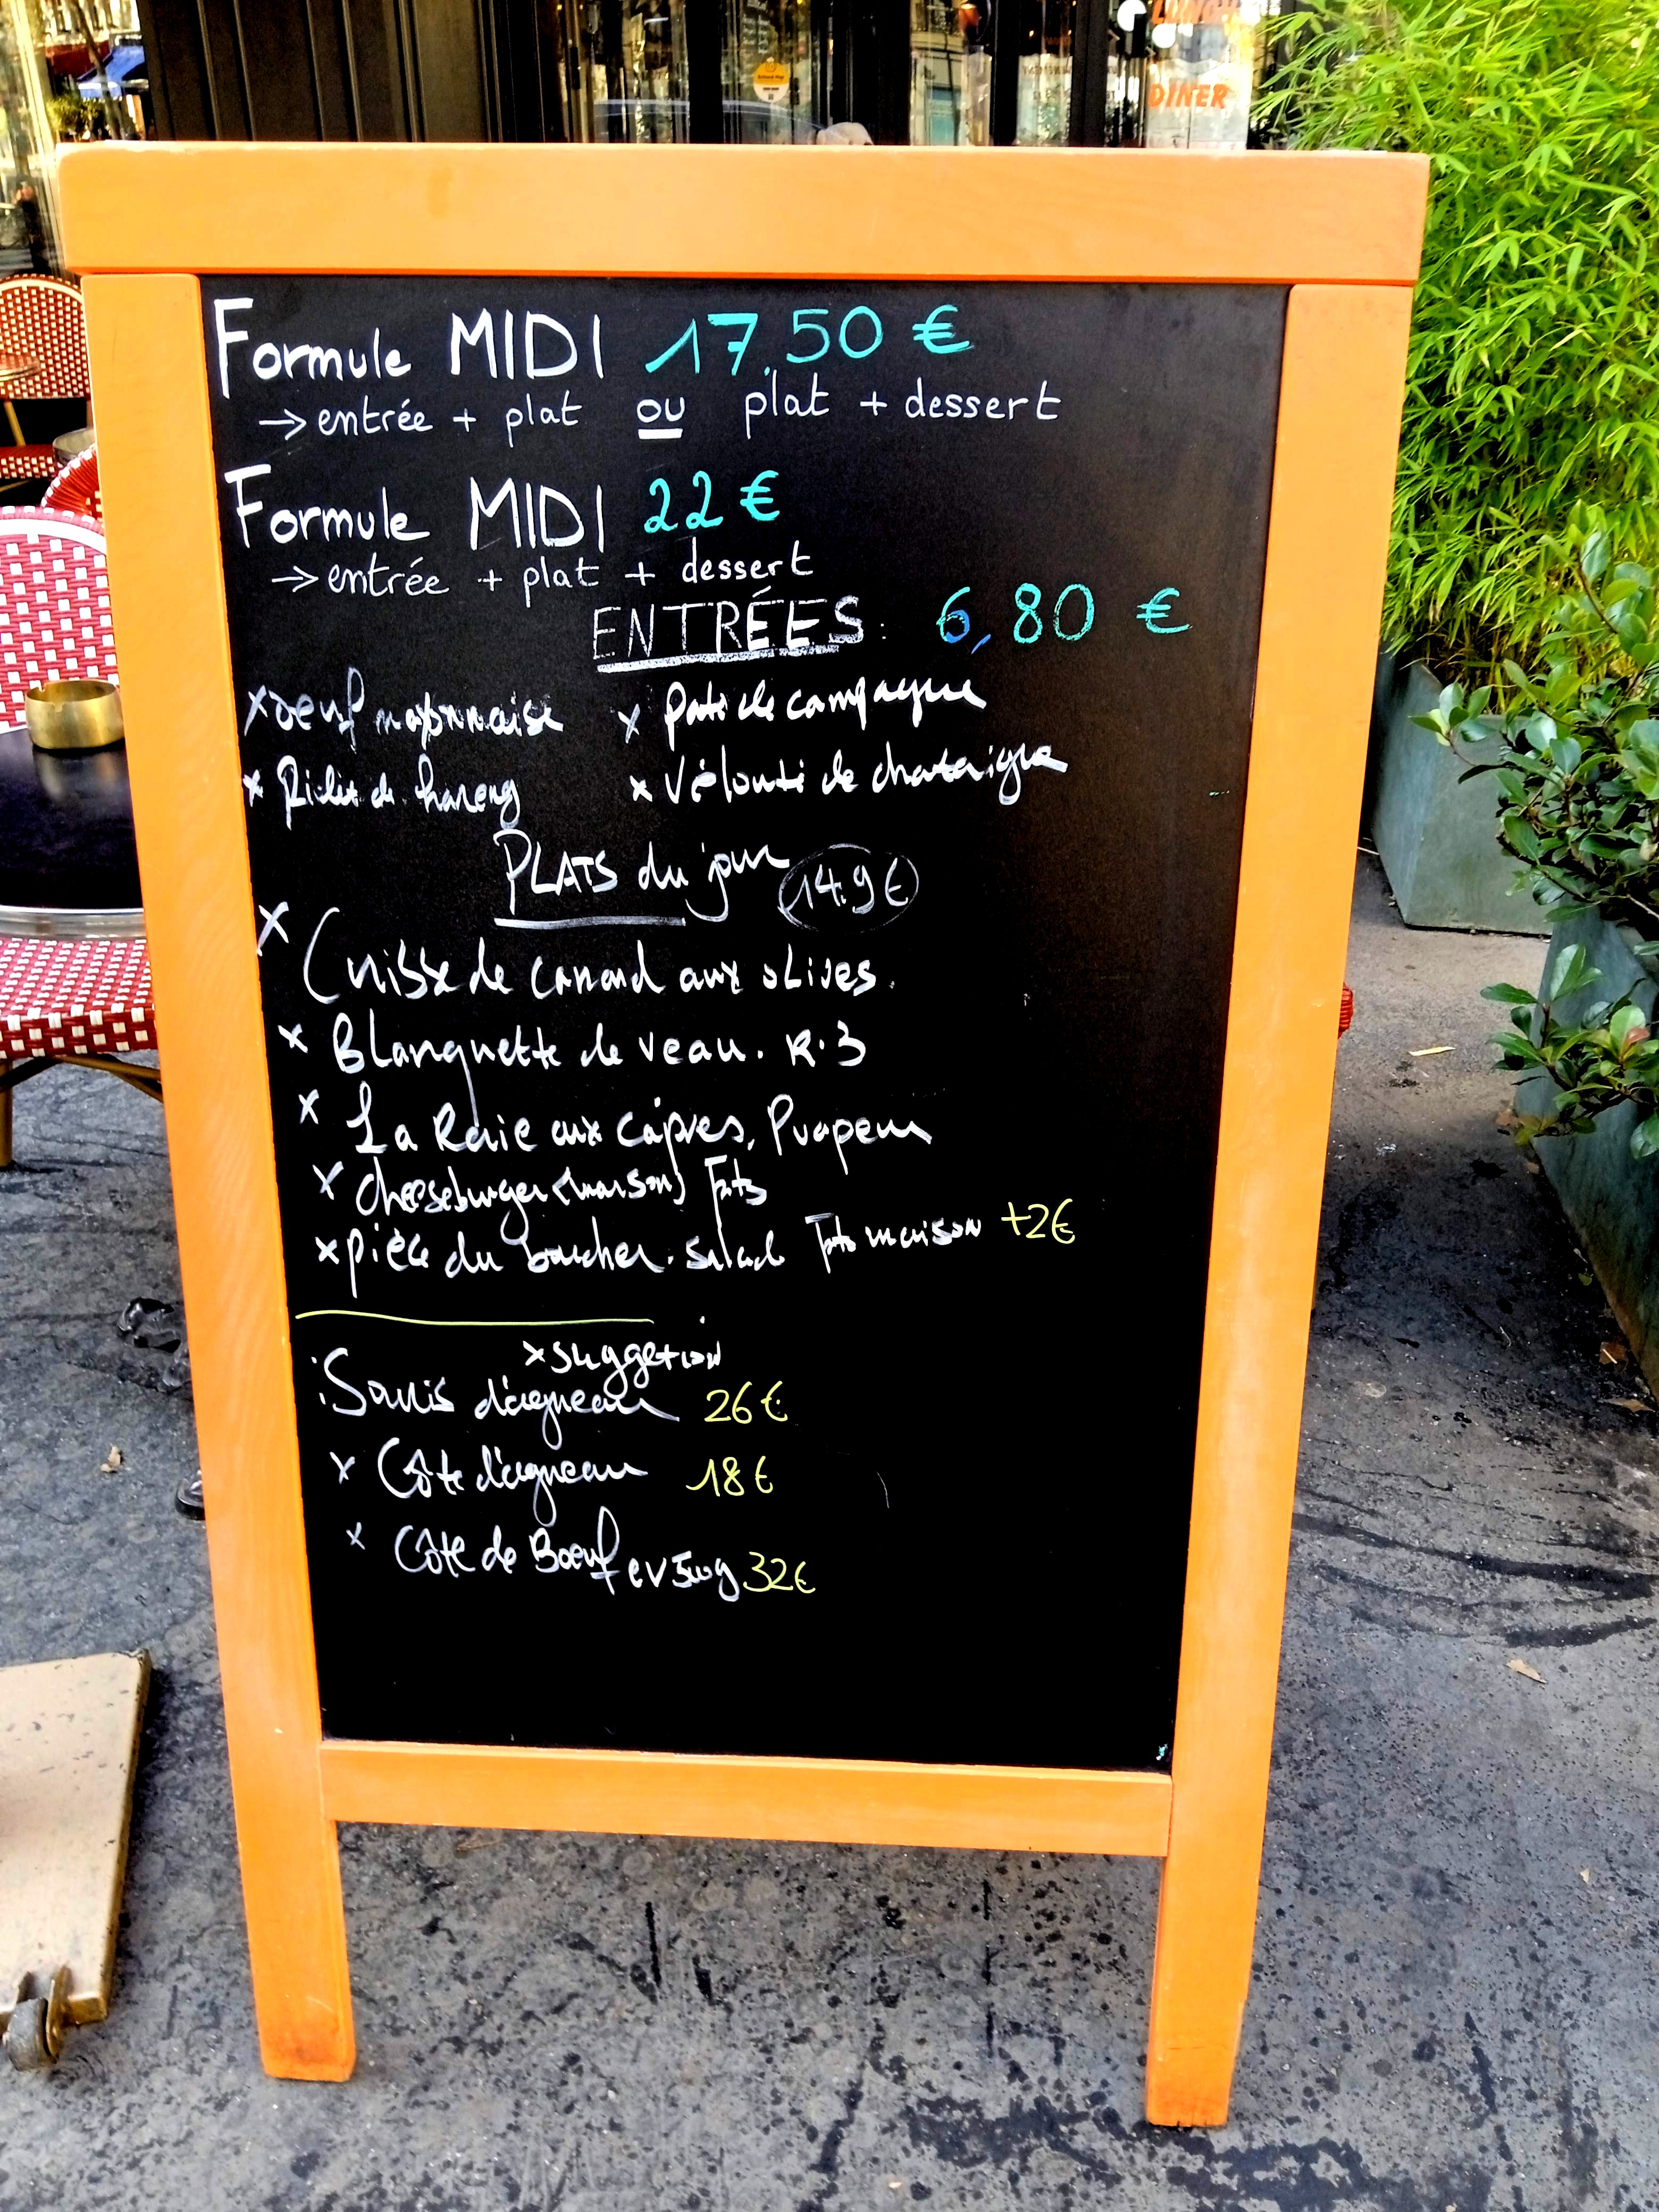 LUNCH
DINER
Formule MIDI 17,50 €
→ entrée + plat ou plat + dessert
Formule MIDI 22 €
→ entrée + plat + dessert
ENTRÉES : 6,80 €
x oeuf mayonnaise x Paté de campagne
x Rillet de hareng x Vélouté de chataigne
PLATS du jour 14.9€
x Cuisse de canard aux olives.
x Blanquette de veau. R.3
x La Raie aux câpres, P vapeur
x cheeseburger (maison) Frits
x pièce du boucher. salade Frits maison +2€
x suggetion
Souris d'agneau 26€
x Côte d'agneau 18€
x Côte de Boeuf 32€